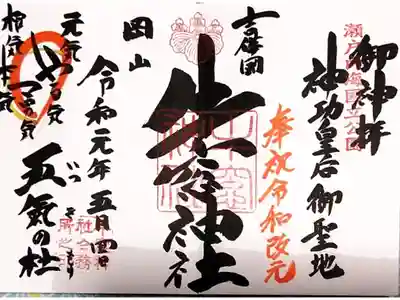 御神拝
瀬戸内海国立公園
神功皇后御聖地
奉祝令和改元
吉備国
牛窓神社
岡山
令和元年五月四日
五気の杜
元気
やる気
根気
本気